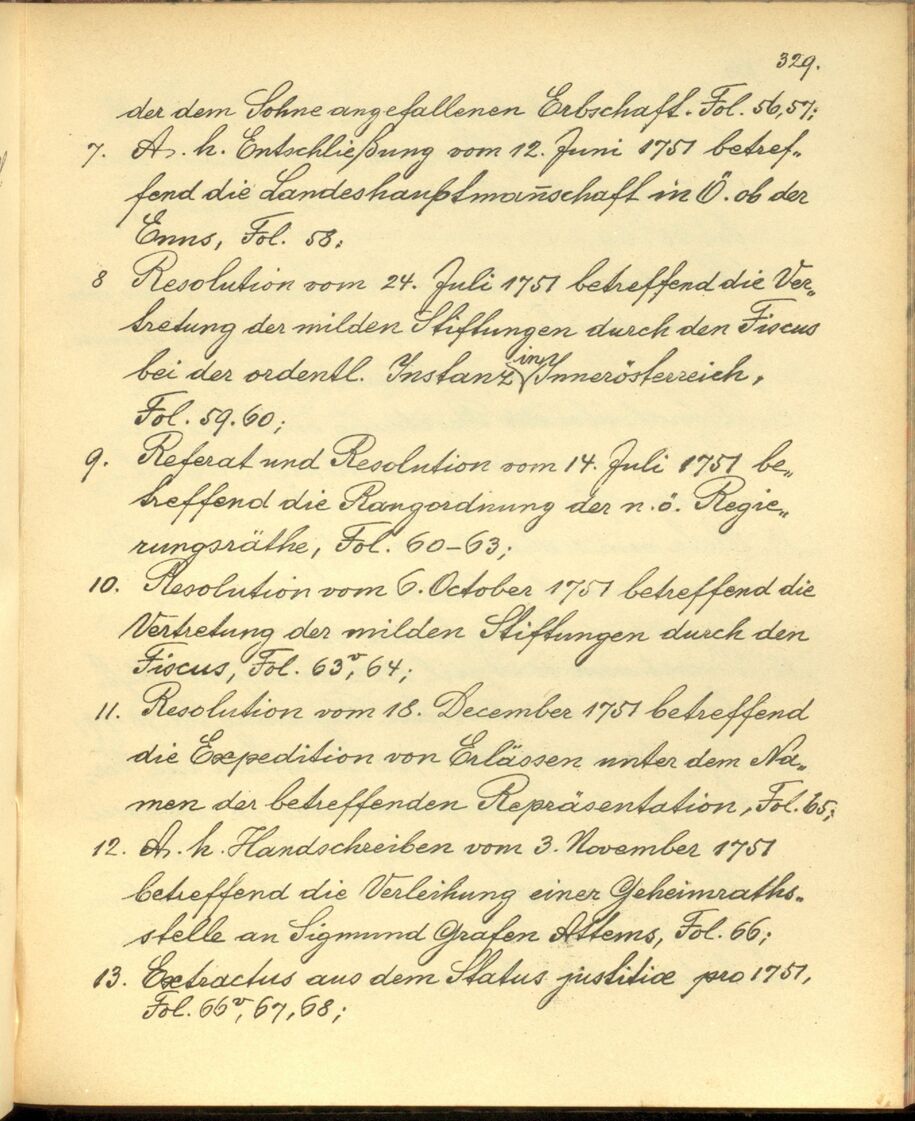 329.
der dem Sohne angefallenen Erbschaft. Fol. 56,57;
7. A. h. Entschließung vom 12. Juni 1751 betref„
fend die Landeshauptman̄schaft in Ö. ob der
Enns, Fol. 58;
8 Resolution vom 24. Juli 1751 betreffend die Ver„
tretung der milden Stiftungen durch den Fiscus
bei der ordentl. Instanz in Innerösterreich,
Fol. 59.60;
9. Referat und Resolution vom 14. Juli 1751 be„
treffend die Rangordnung der n. ö. Regie„
rungsräthe, Fol. 60–63;
10. Resolution vom 6. October 1751 betreffend die
Vertretung der milden Stiftungen durch den
Fiscus, Fol. 63ᵛ, 64;
11. Resolution vom 18. December 1751 betreffend
die Expedition von Erlässen unter dem Na„
men der betreffenden Repräsentation, Fol. 65;
12. A. h. Handschreiben vom 3. November 1751
betreffend die Verleihung einer Geheimraths„
stelle an Sigmund Grafen Attems, Fol. 66;
13. Extractus aus dem Status justitiæ pro 1751,
Fol. 66ᵛ, 67, 68;